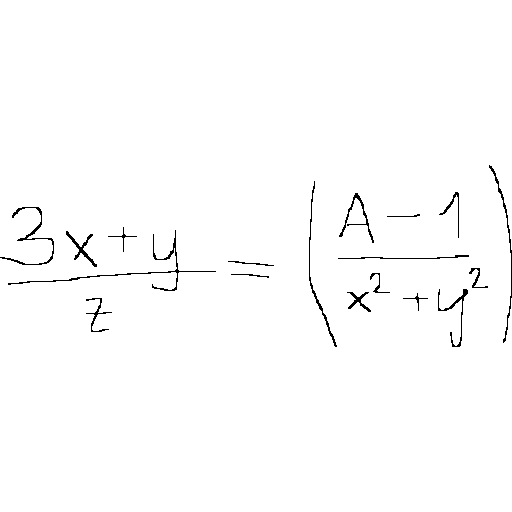 \frac{3x+y}{z} = \left( \frac{A-1}{x^2+y^2} \right)